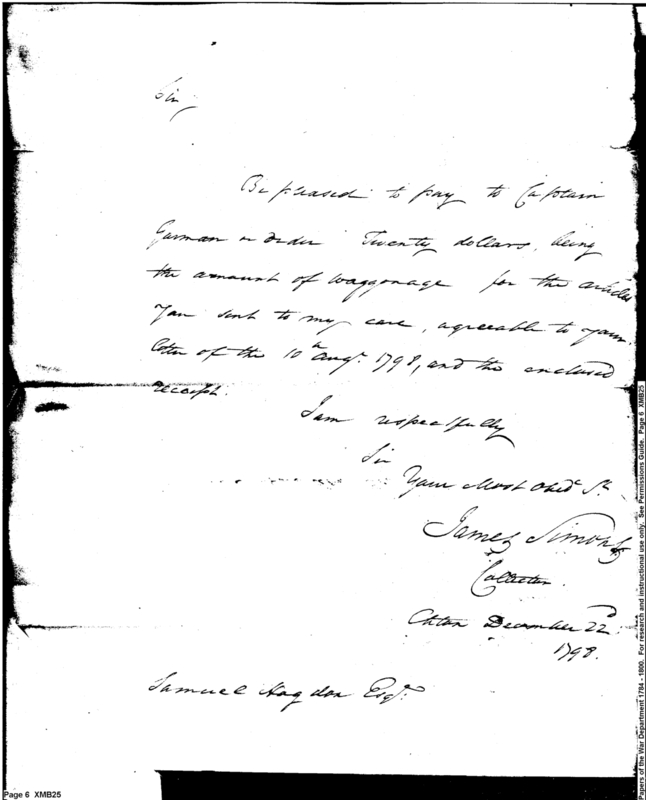 Sir
Be pleased to pay to Captain
Garman or order Twenty dollars, being
the amount of waggonage for the articles
you sent to my care, agreeable to your
letter of the 10th Augt. 1798, and the enclosed
receipt.
I am respectfully
Sir
Your Most Obedt. St.
James Simons
Collector
Chton December 22d
1798.
Samuel Hogdon Esqr.
Page 6 XMB25
Papers of the War Department 1784 - 1800. For research and instructional use only. See Permissions Guide. Page 6 XMB25